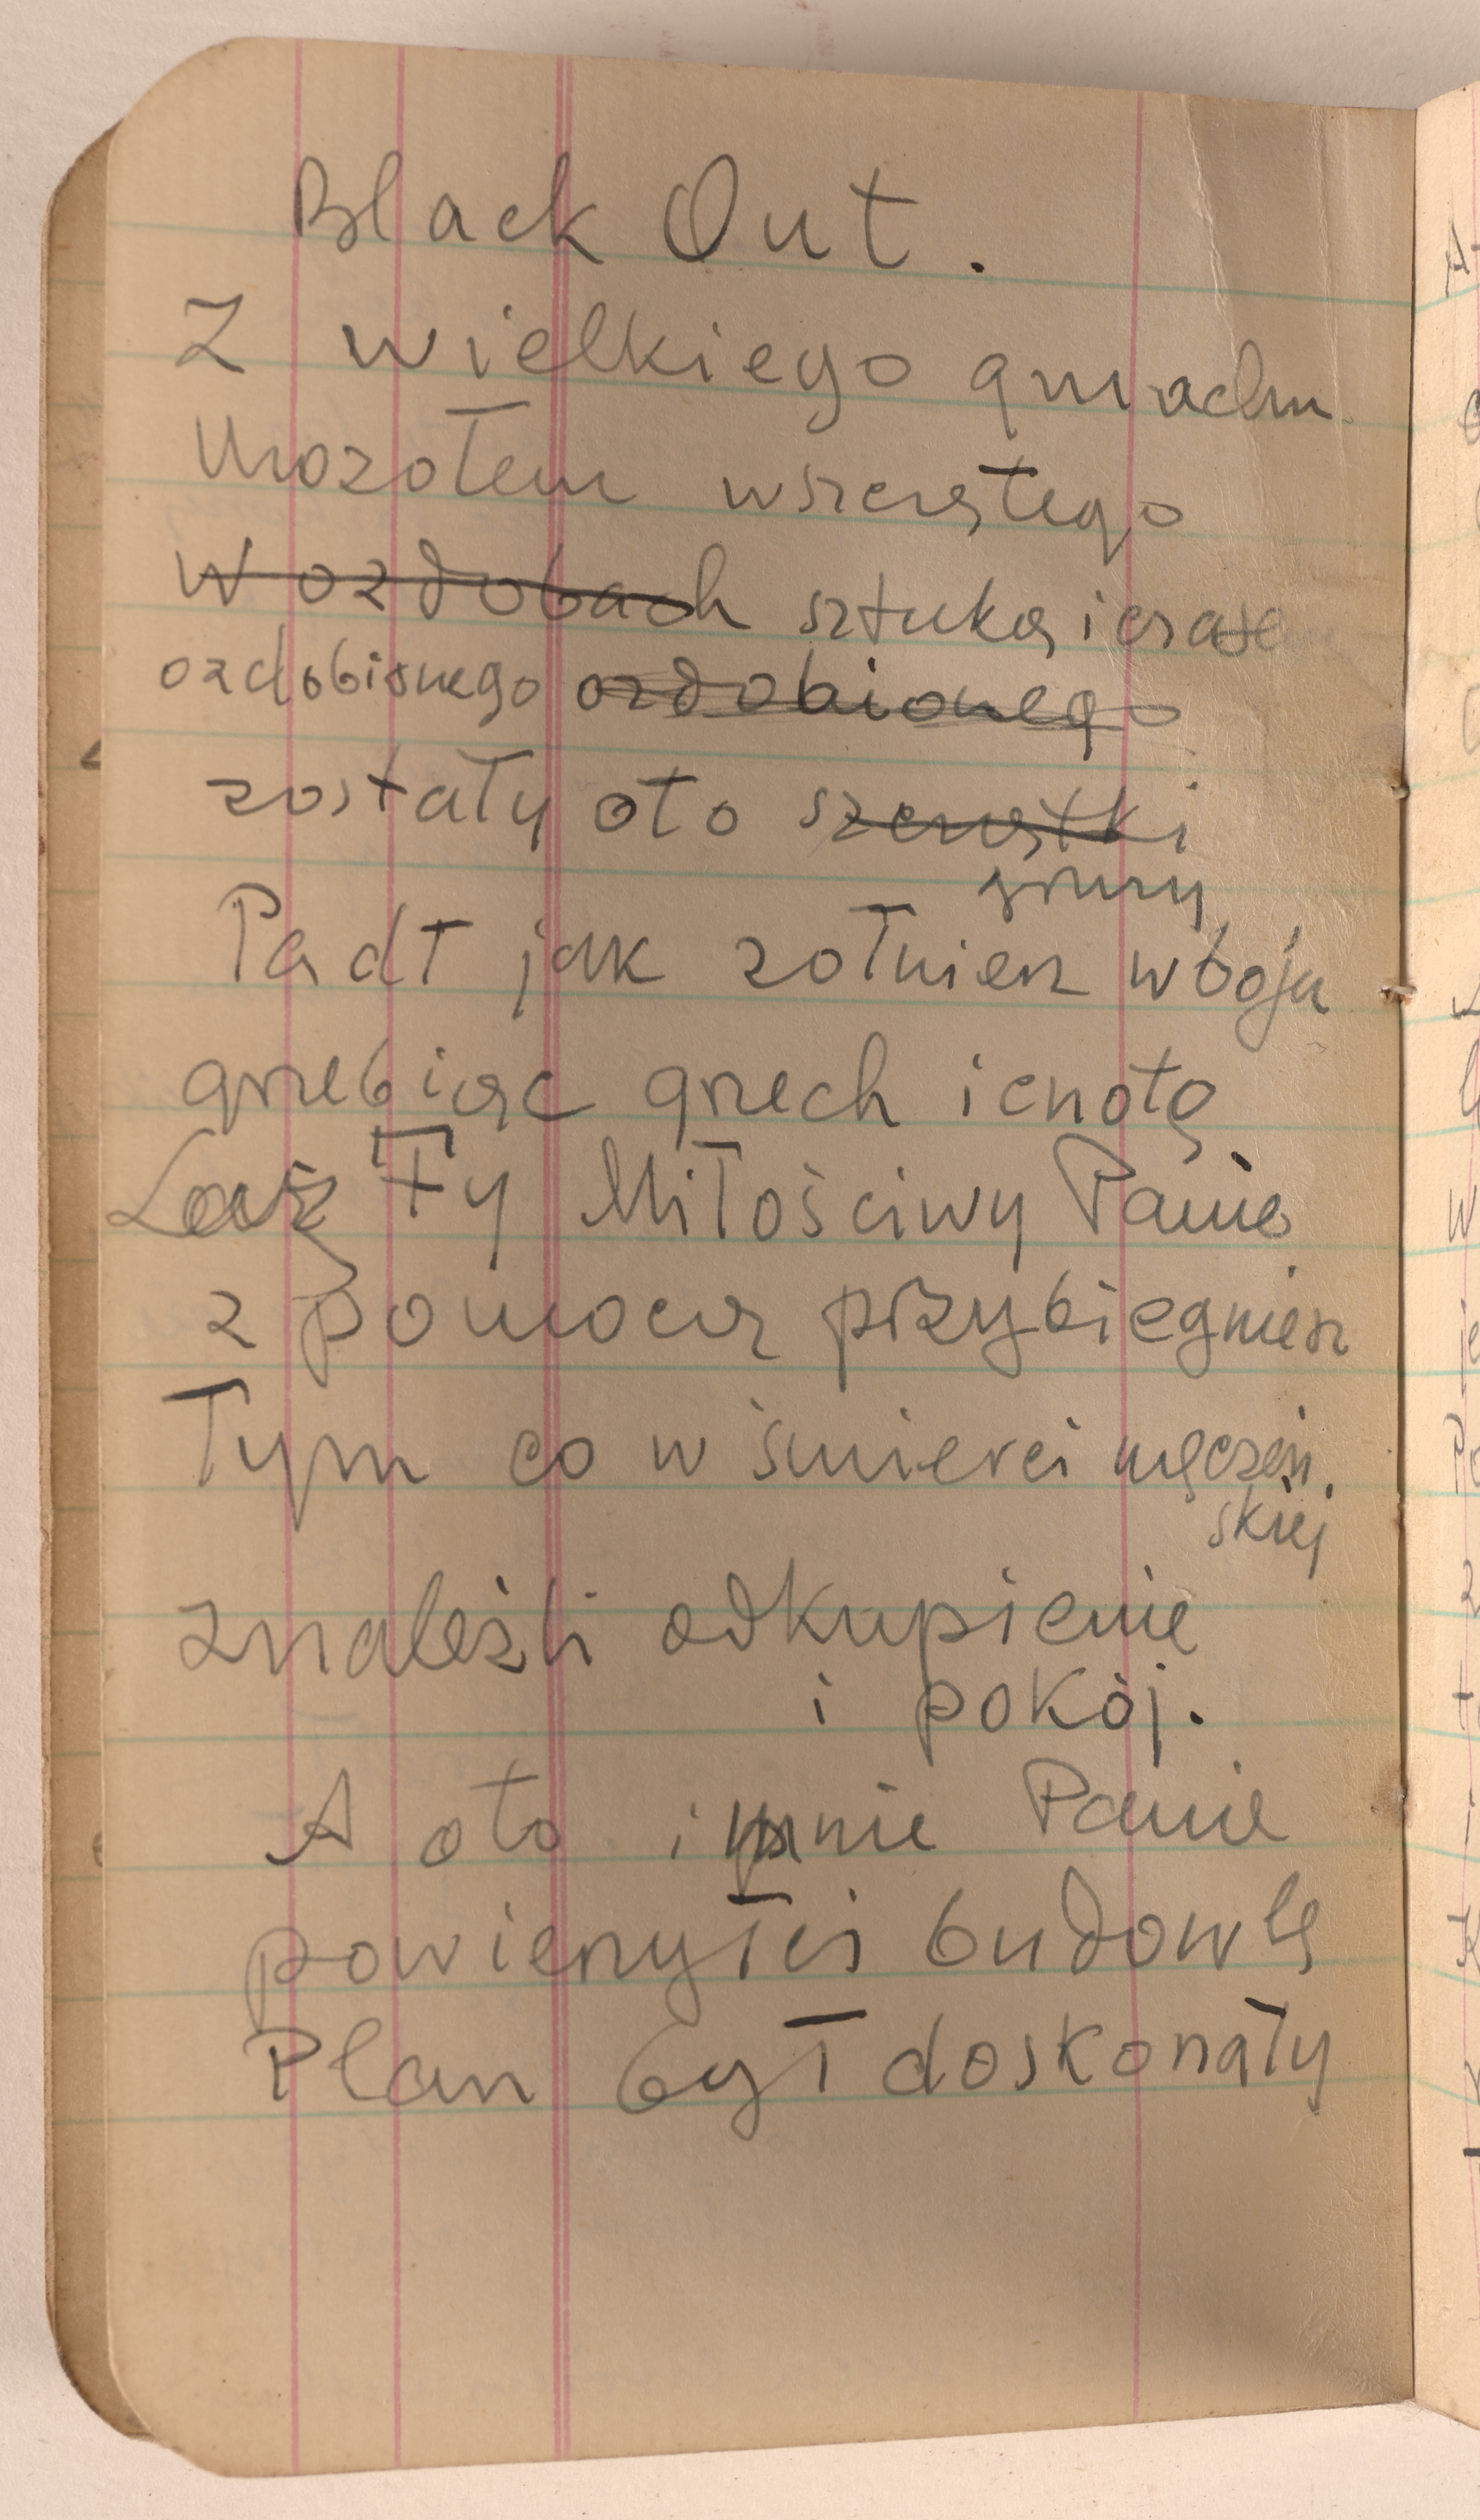 Black Out.
Z wielkiego gmachu
Mozołem wszczętego
w ozdobach sztuką i
ozdobionego ozdobionego
zostały oto szczątki
gruzy
Padł jak żołnierz w boju
grzebiąc grzech i cnotę
Lecz Ty Miłościwy Panie
z pomocą przybiegniesz
Tym co w śmierci męczeń
skiej
znaleźli odkupienie
i pokój.
A oto i mnie Panie
powierzyłeś budowlę
Plan był doskonały